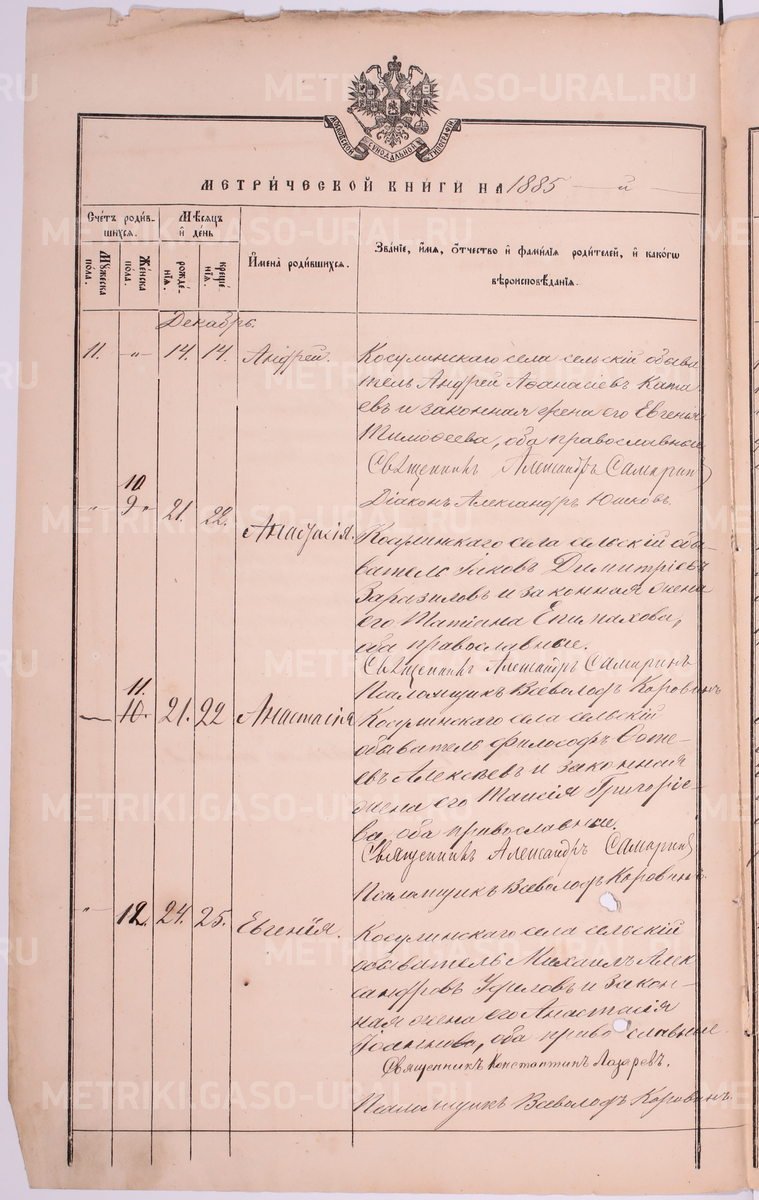 МОСКОВСКОЙ СѴНОДАЛЬНОЙ ТИПОГРАФІИ
МЕТРИ́ЧЕСКОЙ КНИ́ГИ НА 1885 — й —
Сче́тъ роди́в-
шихся.
Мѣ́сяцъ
и҆ де́нь
И҆мена̀ роди́вшихся.
Зва́нїе, и҆́мя, ѻ҆́тчество и҆ фами́лїя роди́телей, и҆ како́гѡ
вѣроисповѣ́данїя.
Мꙋ́жеска
по́ла.
Же́нска
по́ла.
рожде́-
нїя.
креще́-
нїя.
Декабрь.
11. „ 14. 14. Андрей.
Косулинскаго села сельскій обыва
тель Андрей Аѳанасіевъ Ката
евъ и законная жена его Евгенія
Тимоѳеева, оба православные
Священникъ Александръ Самаринъ
Діаконъ Александръ Юшковъ.
10
„ 9 „ 21. 22. Анастасія.
Косулинскаго села сельскій обы-
ватель Іаковъ Димитріевъ
и законная жена
его Татіана Епимахова,
оба православные.
Священникъ Александръ Самаринъ
Псаломщикъ Всеволодъ Коровинъ
11.
— 10. 21. 22 Анастасія
Косулинскаго села сельскій
обыватель Философъ
евъ Алексѣевъ и законная
жена его Таисія Григоріе-
ва, оба православные.
Священникъ Александръ Самаринъ
Псаломщикъ Всеволодъ Коровинъ.
„ 12. 24. 25. Евгенія.
Косулинскаго села сельскій
обыватель Михаилъ Алек
сандровъ и закон-
ная жена его Анастасія
Іоаннова, оба православные
Священникъ Константинъ Лазаревъ.
Псаломщикъ Всеволодъ Коровинъ.
METRIKI.GASO-URAL.RU